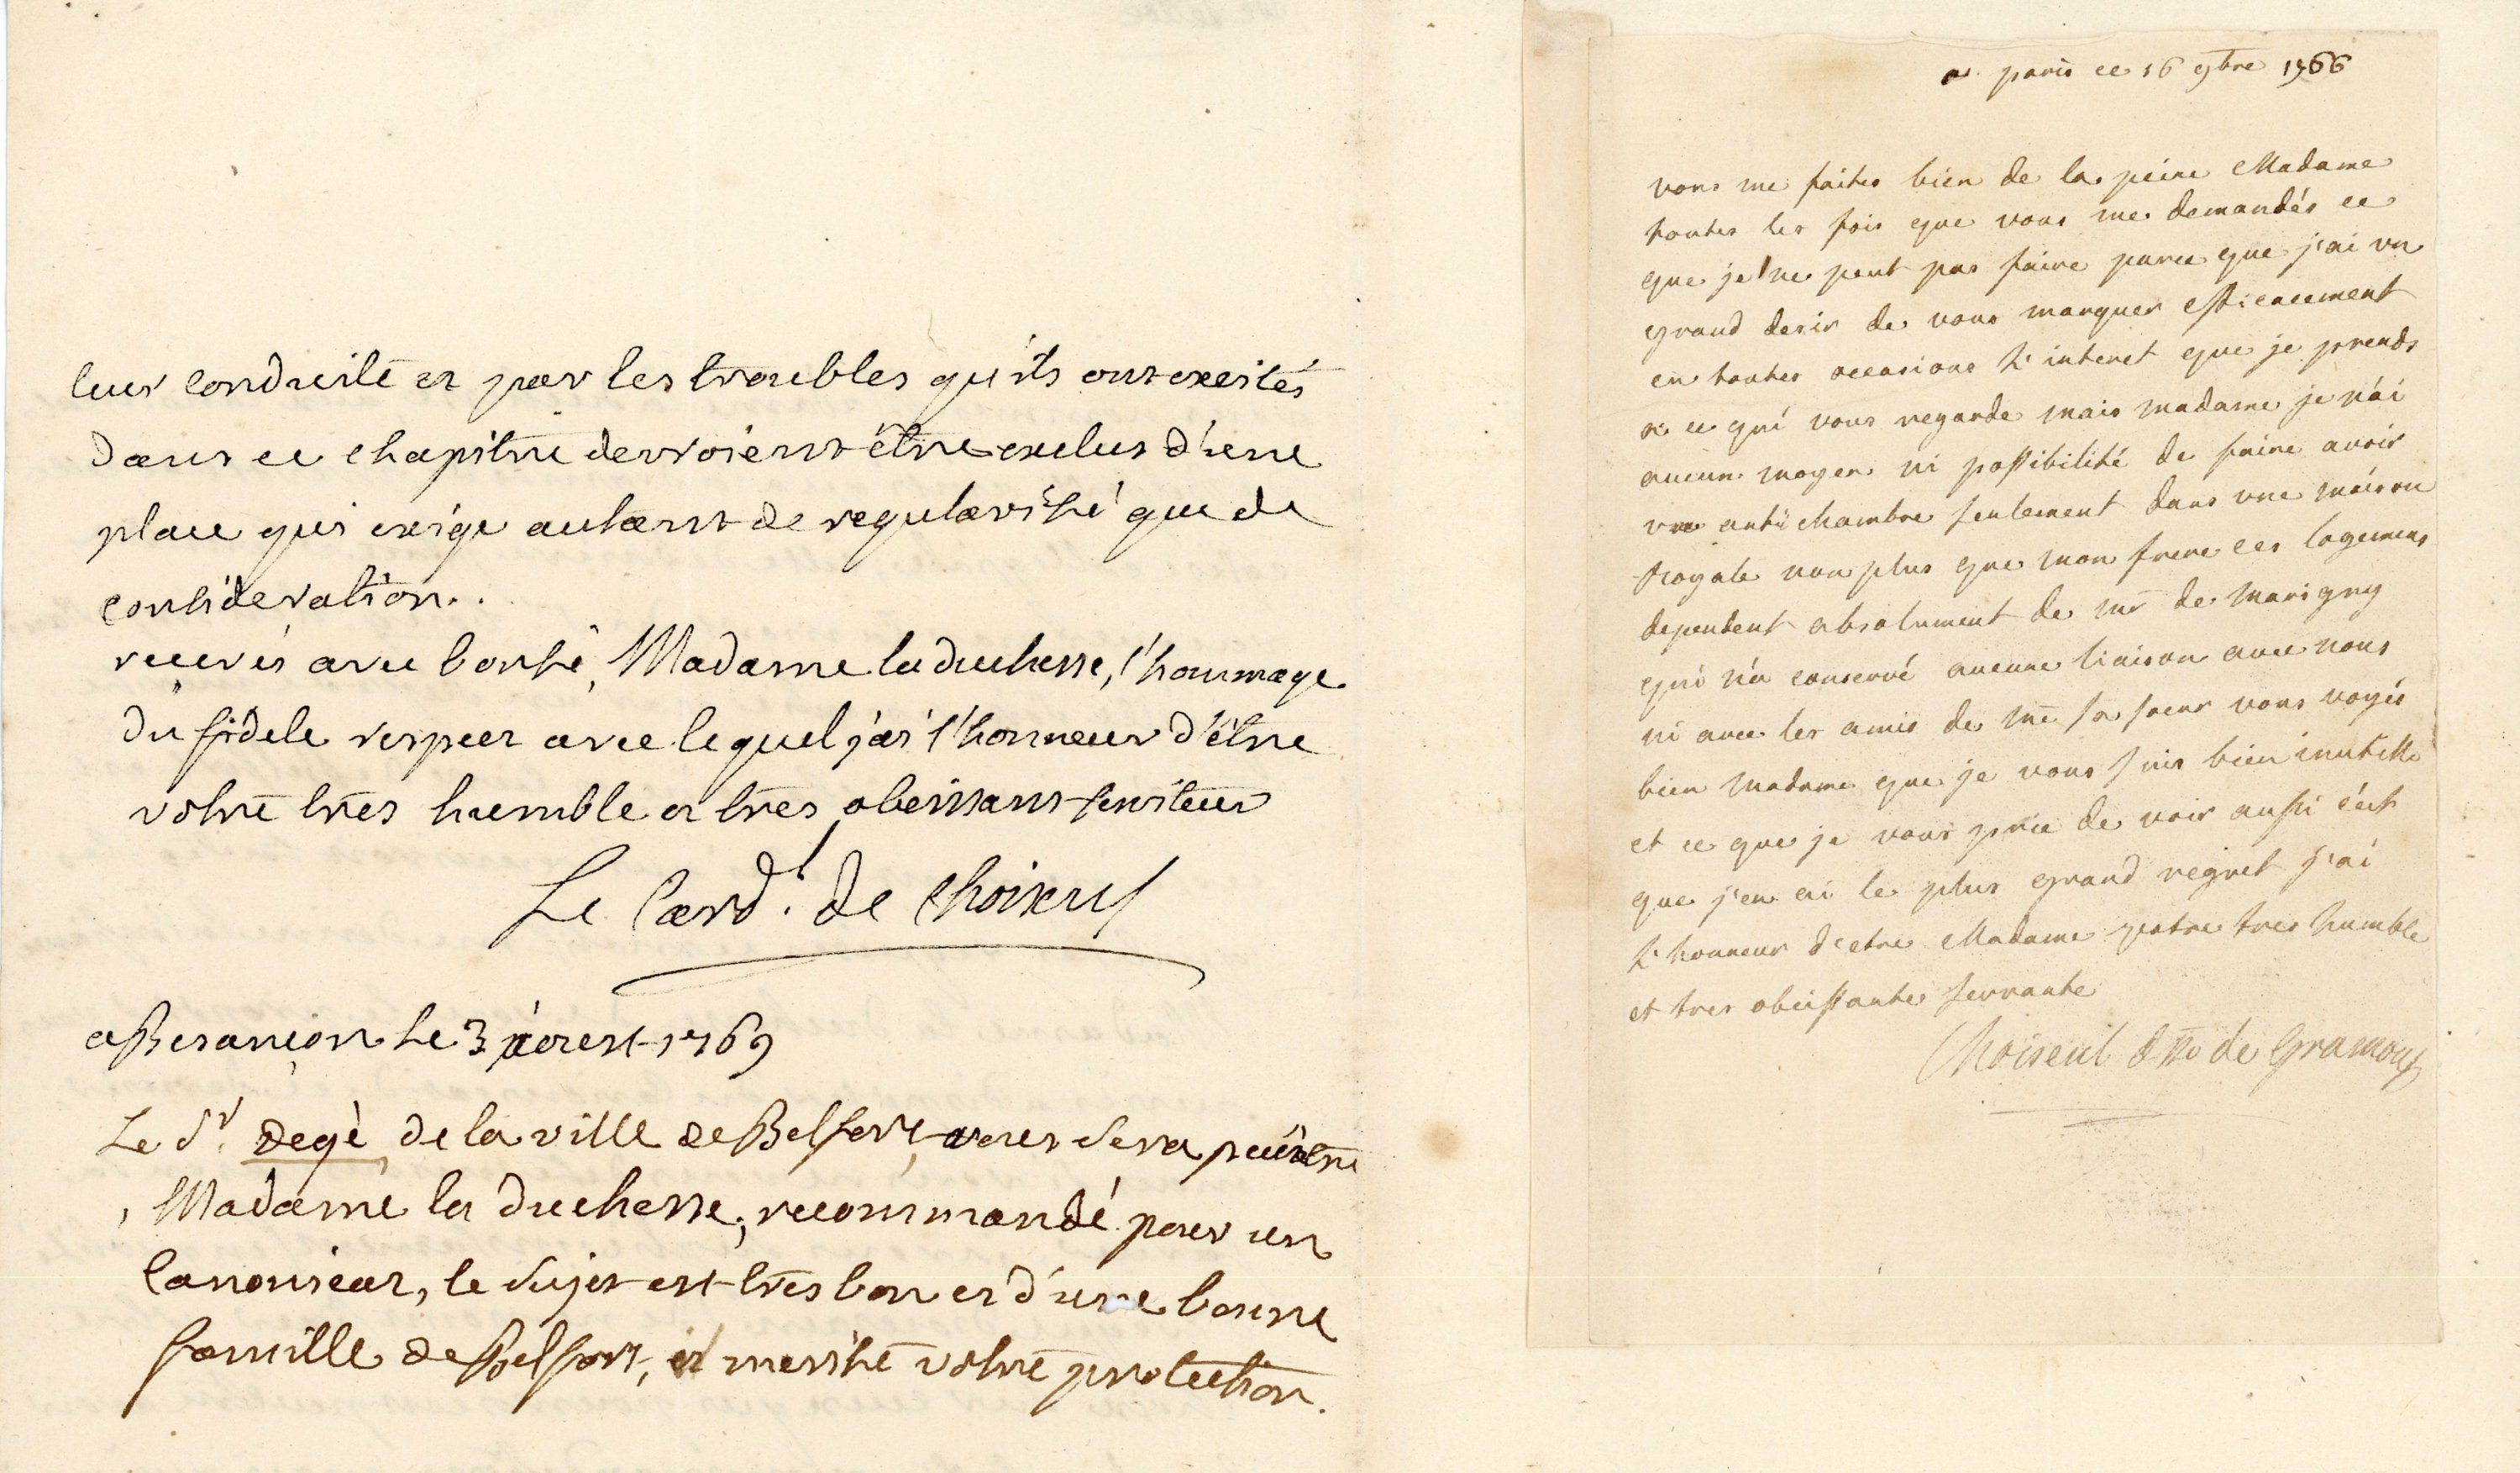 leur conduite et par les troubles qu'ils ont exités
dans ce chapitre devroient être exclus d'une
place qui exige autant de regularité que de
consideration.
recevés avec bonté, Madame la duchesse, l'hommage
du fidele respect avec lequel j'ai l'honneur d'être
votre très humble et très obeissant serviteur
Le Card.l de Choiseul
a Besançon le 3 aoust 1769
Le Sr. Degé de la ville de Belfort, vous sera peut être
, Madame la duchesse, recommandé pour un
Canonicat, le sujet est très bon et d'une bonne
famille de Belfort, il merite votre protection.
a paris ce 16 9bre 1766
vous me faites bien de la peine Madame
toutes les fois que vous me demandés ce
que je ne peut pas faire parce que j'ai un
grand desir de vous marquer efficacement
en toutes occasions l'interet que je prends
a ce qui vous regarde mais madame je n'ai
aucun moyen ni possibilité de faire avoir
une antichambre seulement dans une maison
Royale non plus que mon frere ces logemens
dependent absolument de mr de marigny
qui n'a conservé aucune liaison avec nous
ni avec les amis de me sa soeur vous voyés
bien madame que je vous suis bien inutille
et ce que je vous prie de voir aussi c'est
que j'en ai le plus grand regret j'ai
l'honneur d'etre Madame votre tres humble
et tres obeissante servante
Choiseul dsse de Gramont